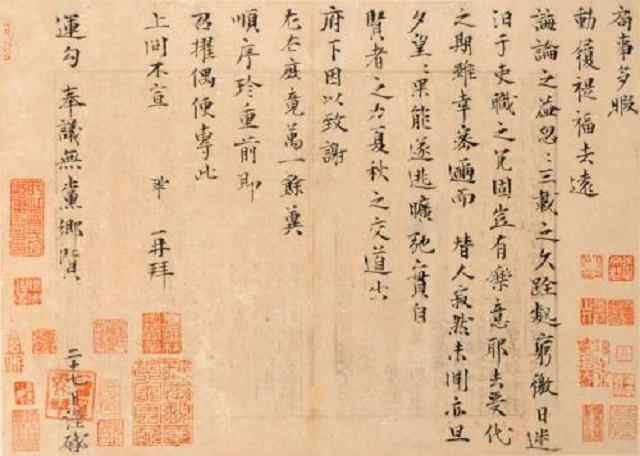 局事多暇
動履禔福去遠
誨論之益忽〻三載之久跧處窮徼日迷
汩于吏職之冗固豈有樂意耶去受代
之期雖幸密邇而替人寂然未聞亦旦
夕望〻果能遂逃曠弛實自
賢者之力夏秋之交道出
府下因以致謝
左右庶竟萬一餘冀
順序珍重前即
召擢偶便專此
上問不宣 鞏再拜
運勾奉議無黨鄉賢 二十七日謹啓